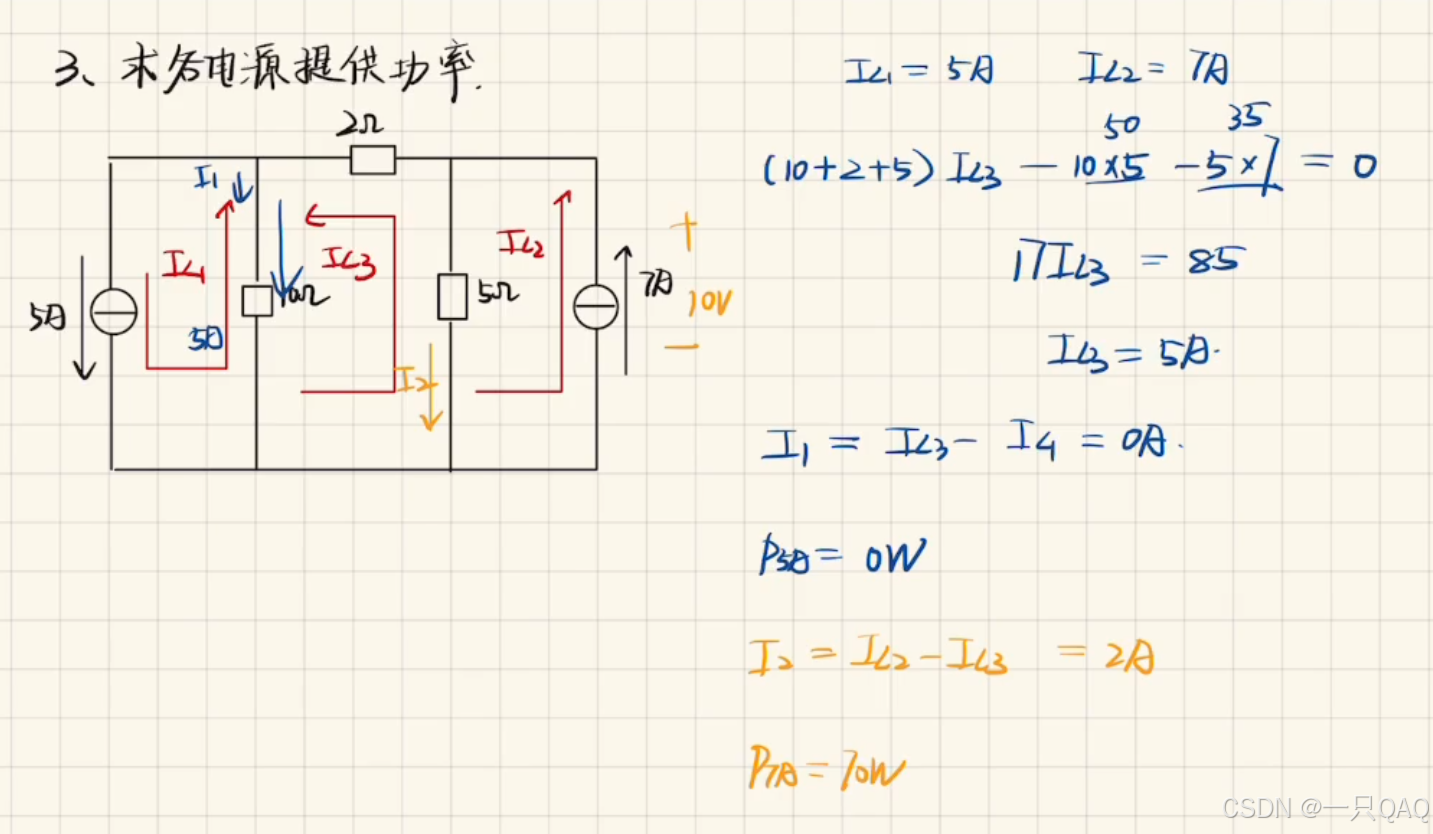 3、求各电源提供功率.
2Ω
I₁
IL1
IL3
IL2
5A
5A
10Ω
5Ω
7A
+
10V
−
I₂
IL1 = 5A IL2 = 7A
50 35
(10+2+5) IL3 − 10×5 − 5×7 = 0
17IL3 = 85
IL3 = 5A.
I₁ = IL3 − IL1 = 0A.
P5A = 0W
I₂ = IL2 − IL3 = 2A
P7A = 70W
CSDN @一只QAQ